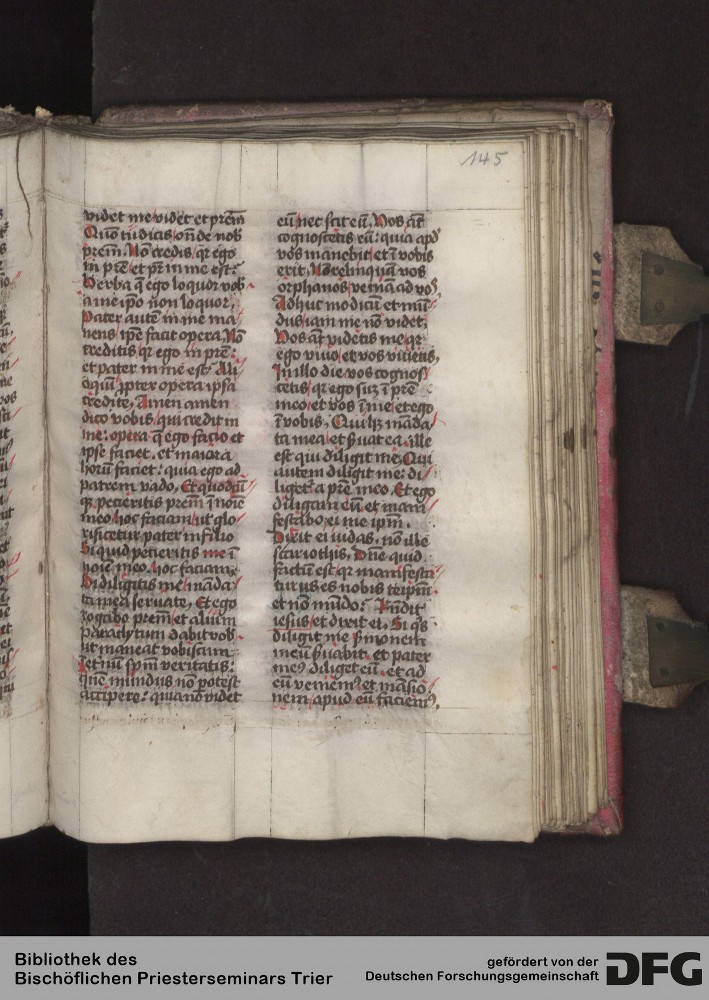 145
videt me videt et prēm
Quō tu dicis, oñde nob̄
prēm. Nō credis, qr ego
in prē et pr̄ in me est?
Verba q̄ ego loquor vob̄
a me ip̄o non loquor.
Pater autē in me ma
nens ip̄e facit opera. Nō
creditis qr ego in prē:
et pater in me est? Ali
oqui ꝓpter opera ipsa
credite. Amen amen
dico vobis, qui credit in
me: opera q̄ ego facio et
ipse faciet, et maiora
horū faciet: quia ego ad
patrem vado. Et quodcū
qꝫ pecieritis prēm ī noīe
meo, hoc faciam, ut glo
rificetur pater in filio
Si quid pecieritis me ī
noīe meo, hoc faciam.
Si diligitis me, manda
ta mea servate. Et ego
rogabo prem̄ et alium
paraclytum dabit vob̄
ut maneat vobiscum
ī etnū sp̄m veritatis:
quē mundus nō potest
accipere: quia nō videt
eū, nec scit eū. Vos aūt
cognoscetis eū: quia apđ
vos manebit, et ī vobis
erit. Nō relinquā vos
orphanos, veniā ad vos.
Adhuc modicū et mū
dus iam me nō videt.
Vos aūt videtis me, qr
ego vivo, et vos vivetis.
In illo die vos cognos
cetis, qr ego sū ī prē
meo, et vos ī me, et ego
ī vobis. Qui hꝫ manda
ta mea, et ẜuat ea, ille
est qui diligit me. Qui
autem diligit me: di
liget̄ a prē meo. Et ego
diligam eū et mani
festabo ei me ip̄m.
Dixit ei iudas, nō ille
scariothis, Dn̄e quid
factū est, qr manifesta
turus es nobis teip̄m
et nō mūdo? Rn̄dit
iesus, et dixit ei. Si q̄s
diligit me ẜmonem
meū ẜuabit, et pater
meꝰ diliget eū, et ad
eū veniemꝰ et māsio
nem apud eū faciemꝰ.
Bibliothek des
Bischöflichen Priesterseminars Trier
gefördert von der
Deutschen Forschungsgemeinschaft
DFG